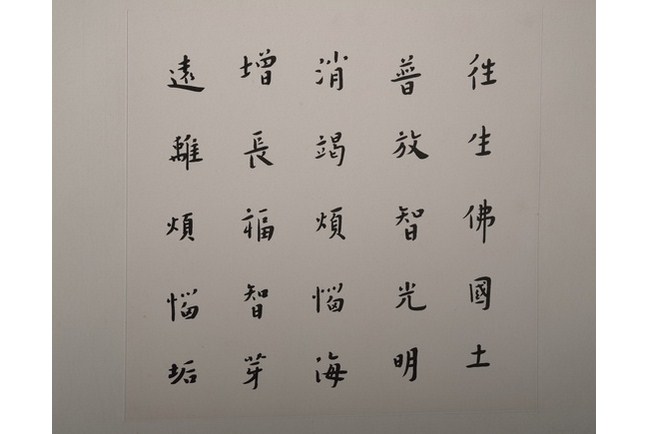 往生佛國土
普放智光明
消竭煩惱海
增長福智芽
遠離煩惱垢